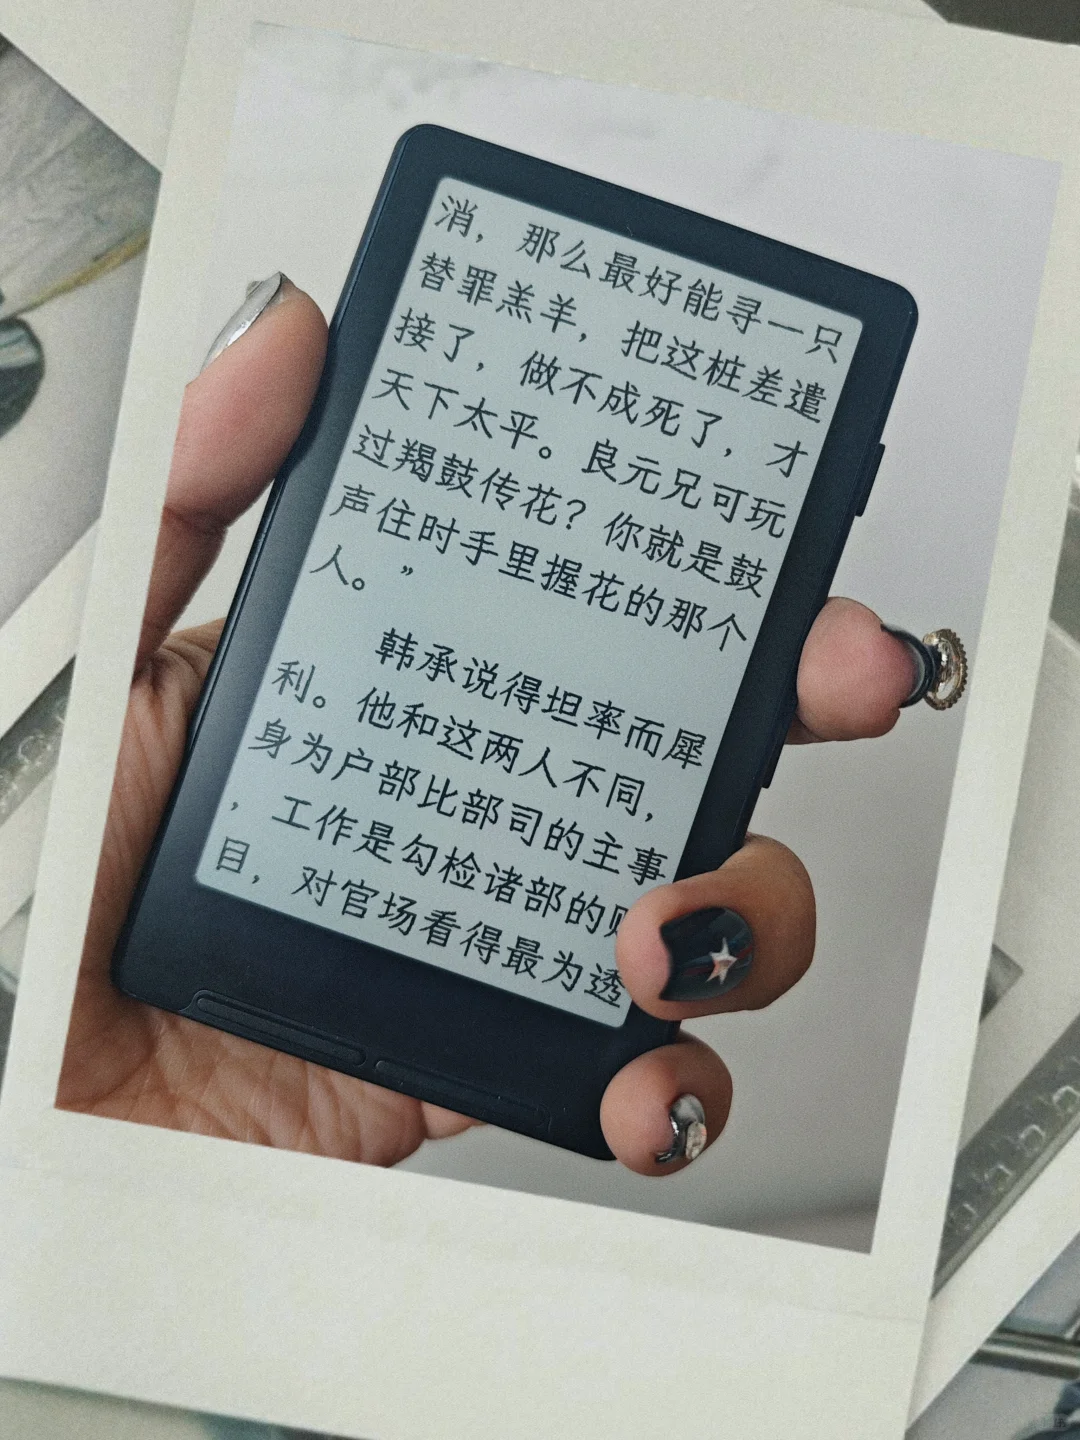 消，那么最好能寻一只
替罪羔羊，把这桩差遣
接了，做不成死了，才
天下太平。良元兄可玩
过羯鼓传花？你就是鼓
声住时手里握花的那个
人。”
韩承说得坦率而犀
利。他和这两人不同，
身为户部比部司的主事
，工作是勾检诸部的
目，对官场看得最为透